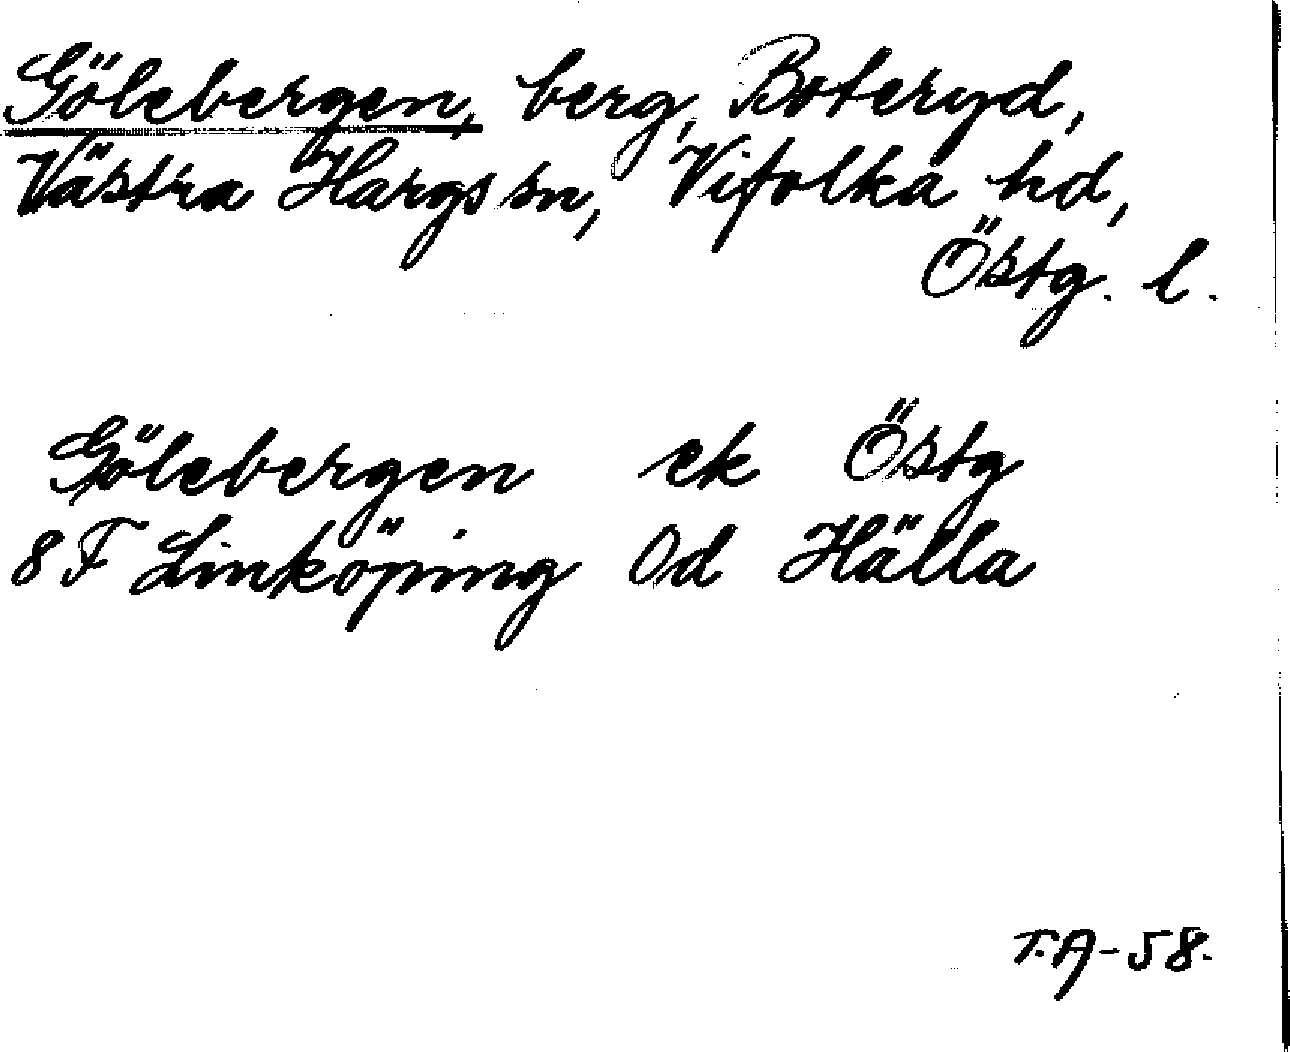 Gölebergen, berg, Boteryd,
Västra Hargs sn, Vifolka hd,
Östg. l.
Gölebergen ek Östg
8 F Linköping Od Hälla
T.A-58.